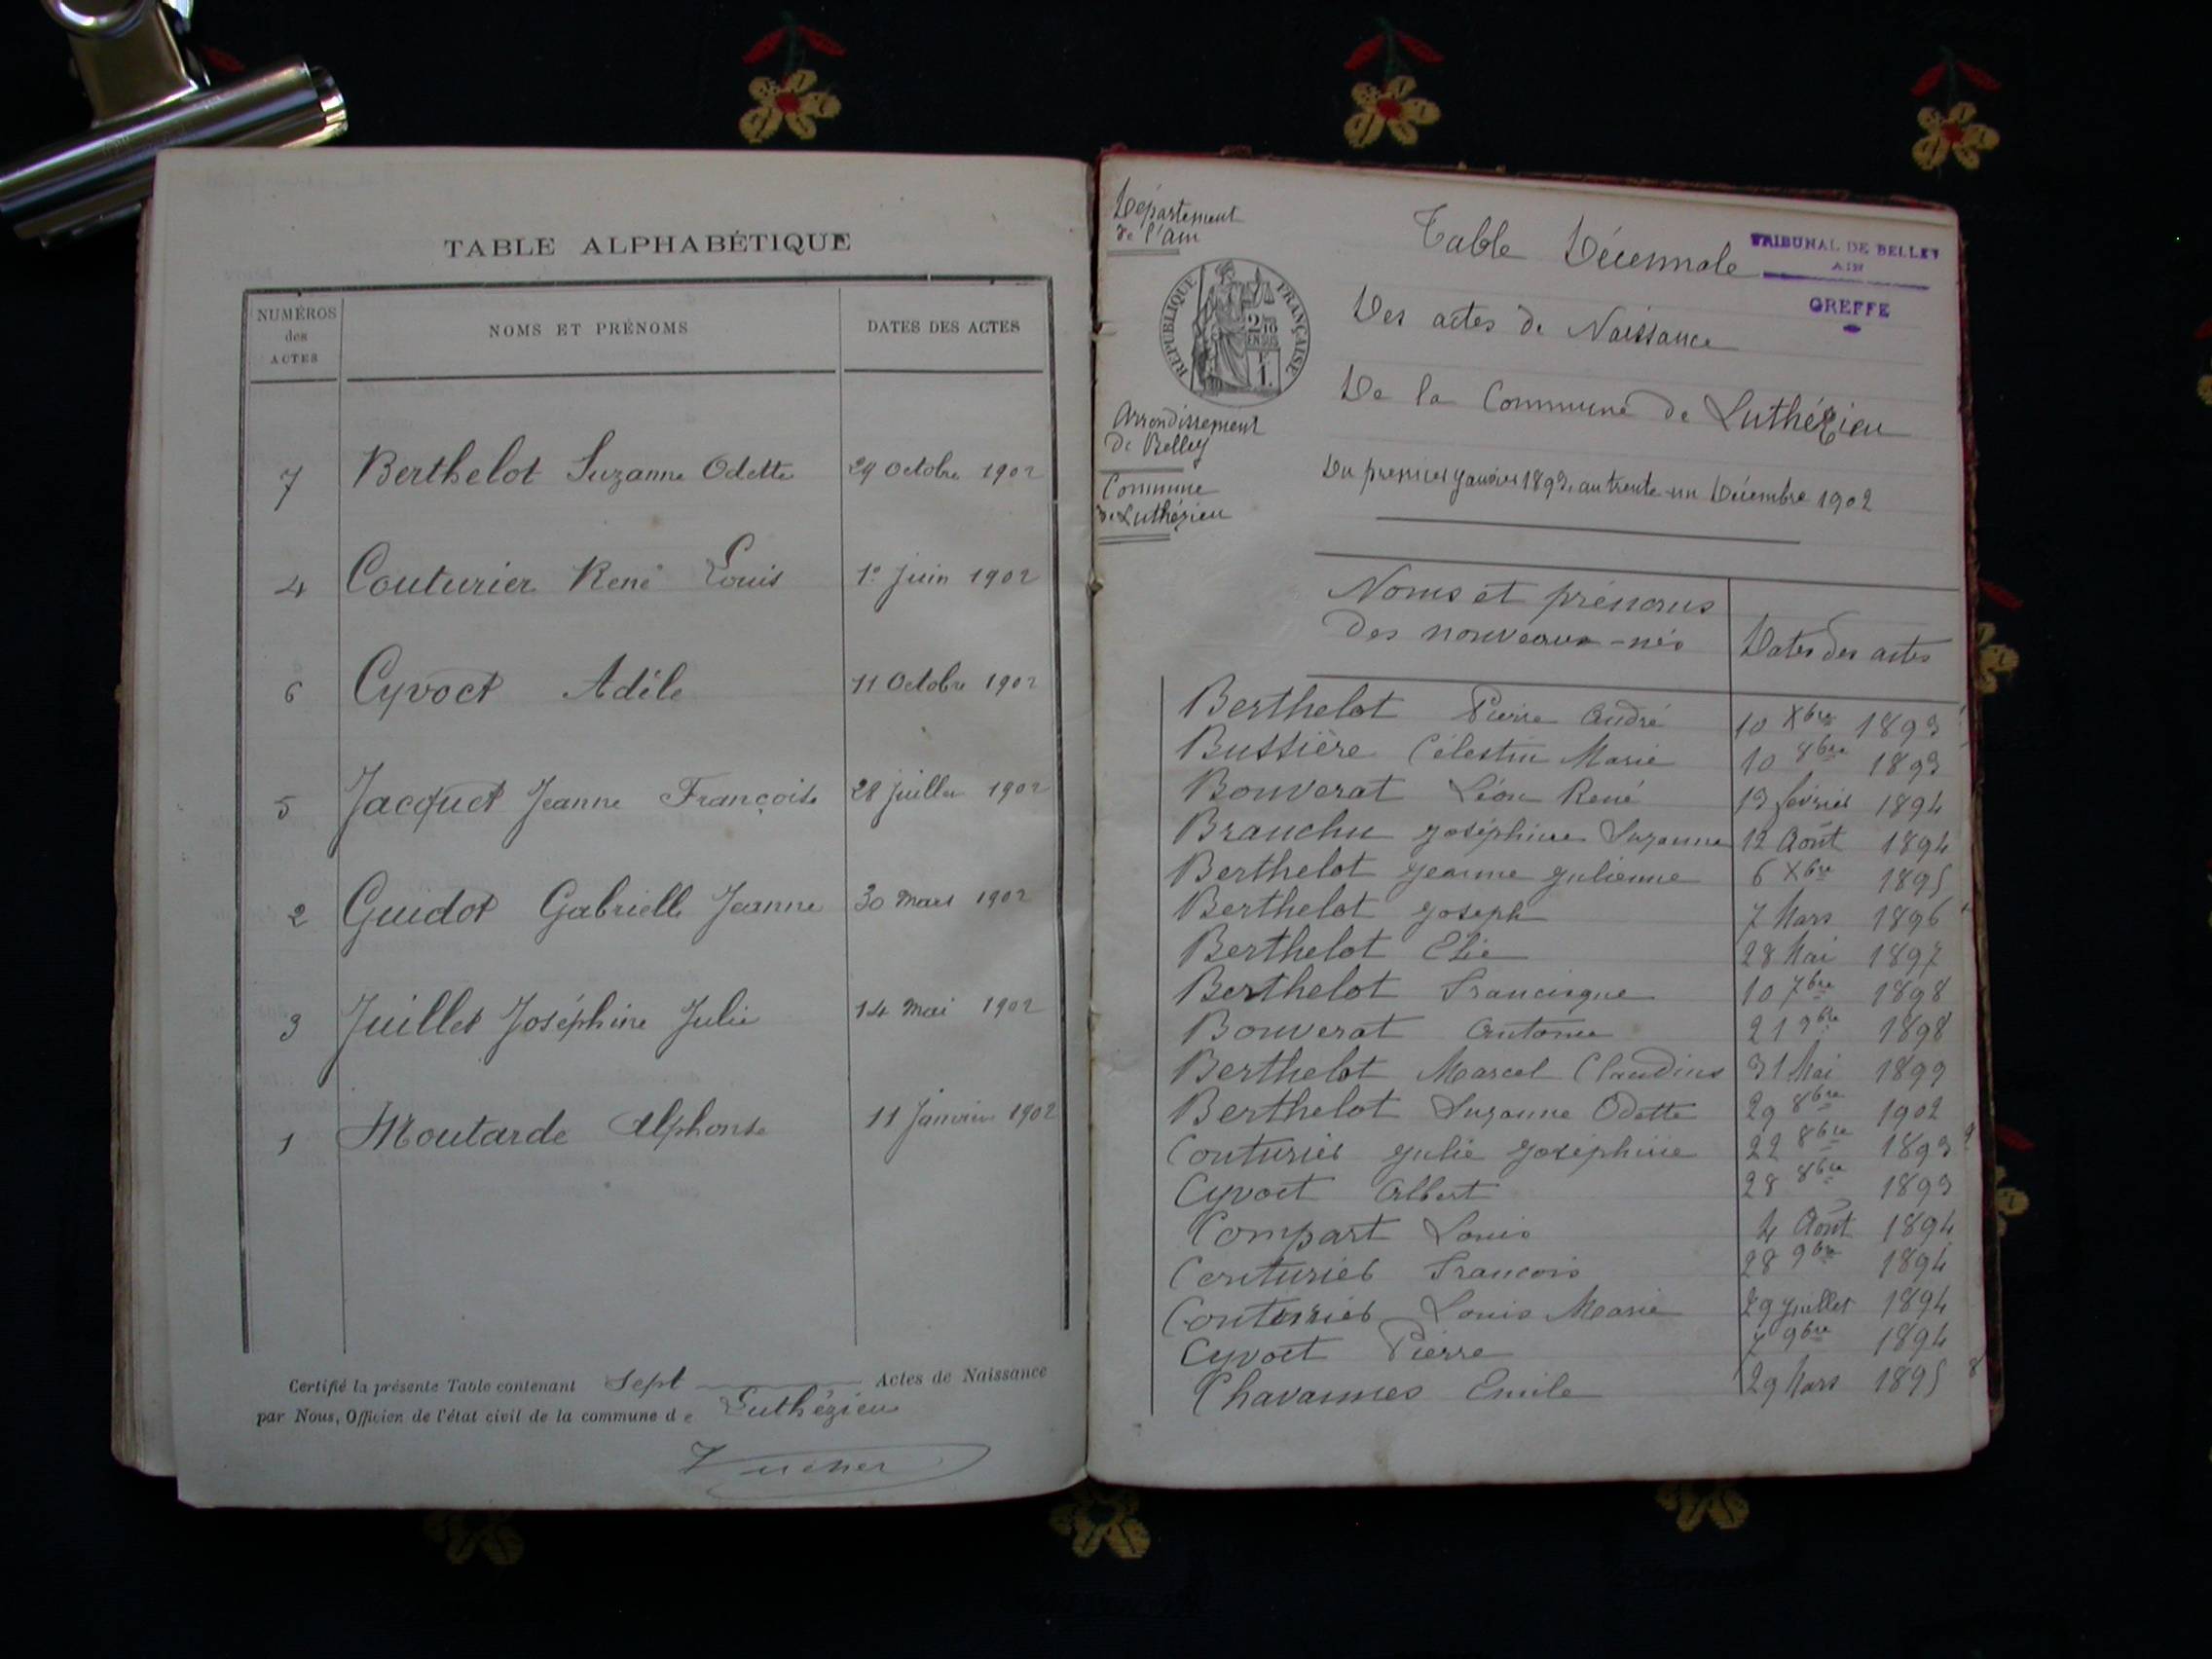 TABLE ALPHABÉTIQUE
NUMÉROS
des
ACTES
NOMS ET PRÉNOMS
DATES DES ACTES
7 Berthelot Suzanne Odette 29 Octobre 1902
4 Couturier René Louis 1er Juin 1902
6 Cyvoct Adèle 11 Octobre 1902
5 Jacquet Jeanne Françoise 28 juillet 1902
2 Guidot Gabrielle Jeanne 30 Mars 1902
3 Juillet Joséphine Julie 14 Mai 1902
1 Moutarde Alphonse 11 Janvier 1902
Certifié la présente Table contenant Sept Actes de Naissance
par Nous, Officier de l'état civil de la commune de Luthézieu
Département
de l'Ain
RÉPUBLIQUE FRANÇAISE
2/10
EN SUS
F.
1.
Arrondissement
de Belley
Commune
de Luthézieu
Table Décennale
TRIBUNAL DE BELLEY
AIN
GREFFE
Des actes de Naissance
De la Commune de Luthézieu
Du premier Janvier 1893, au trente-un Décembre 1902
Noms et prénoms
des nouveaux-nés
Dates des actes
Berthelot Pierre André 10 Xbre 1893
Bussière Célestin Marie 10 8bre 1893
Bouverat Léon René 13 février 1894
Branchu Joséphine Suzanne 12 Août 1894
Berthelot Jeanne Julienne 6 Xbre 1895
Berthelot Joseph 7 Mars 1896
Berthelot Elie 28 Mai 1897
Berthelot Francisque 10 7bre 1898
Bouverat Antoine 21 9bre 1898
Berthelot Marcel Claudius 31 Mai 1899
Berthelot Suzanne Odette 29 8bre 1902
Couturier Julie Joséphine 22 8bre 1893
Cyvoct Albert 28 8bre 1893
Compart Louis 4 Août 1894
Couturier Francois 28 9bre 1894
Couturier Louis Marie 29 Juillet 1894
Cyvoct Pierre 7 9bre 1894
Chavannes Emile 29 Mars 1895